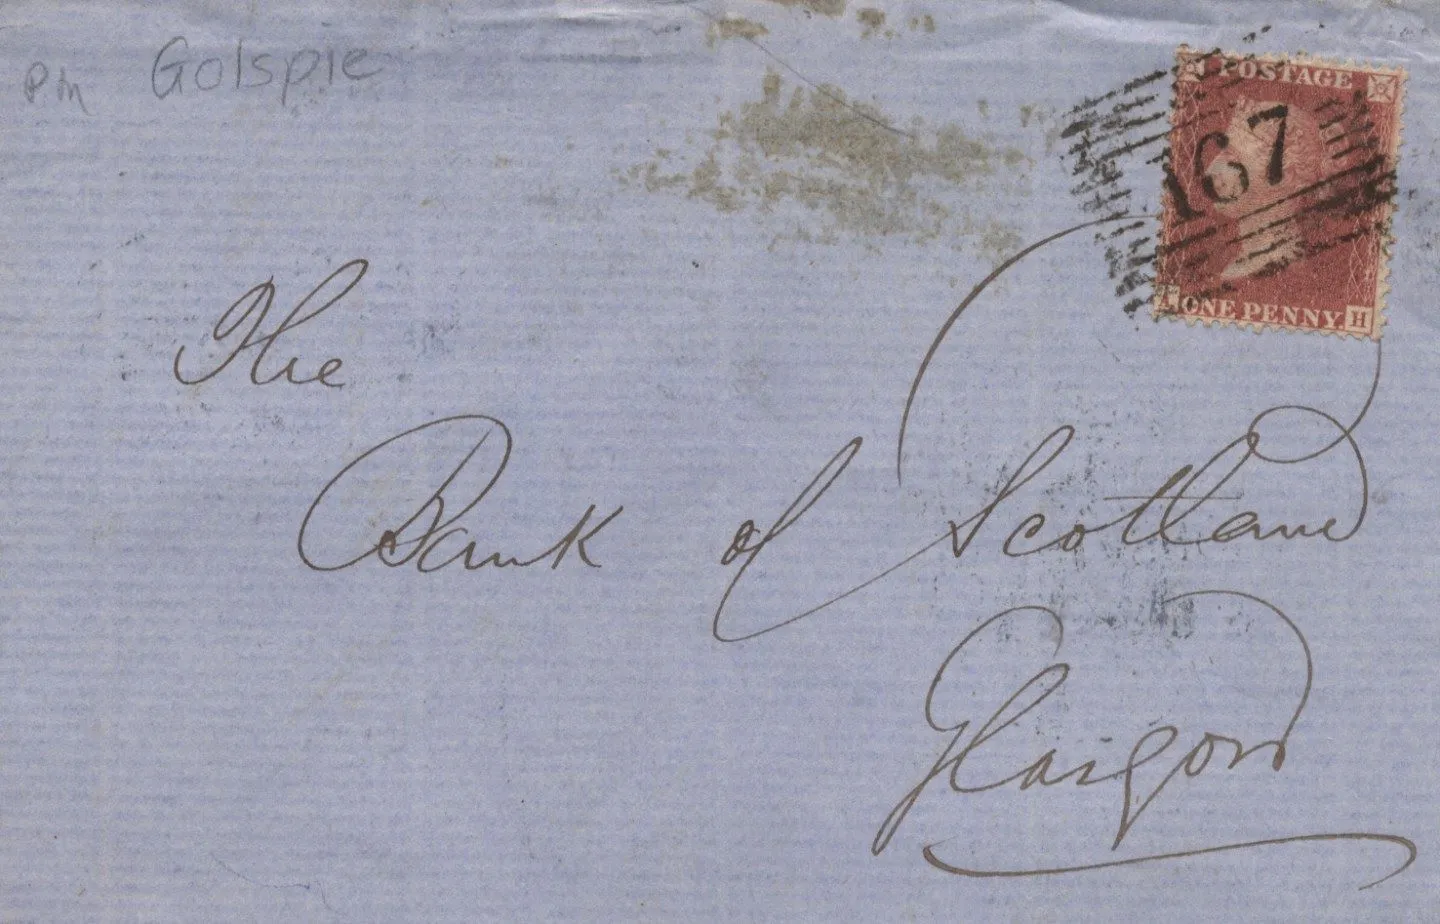 Pm Golspie
POSTAGE
167
ONE PENNY H
The
Bank of Scotland
Glasgow